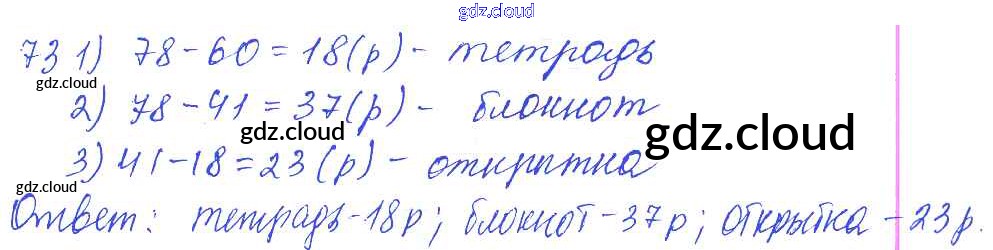 gdz.cloud
73 1) 78-60=18(р)- тетрадь
gdz.cloud
2) 78-41=37(р)- блокнот
gdz.cloud gdz.cloud
3) 41-18=23(р)- открытка
gdz.cloud
Ответ: тетрадь-18р; блокнот-37р; открытка-23р.